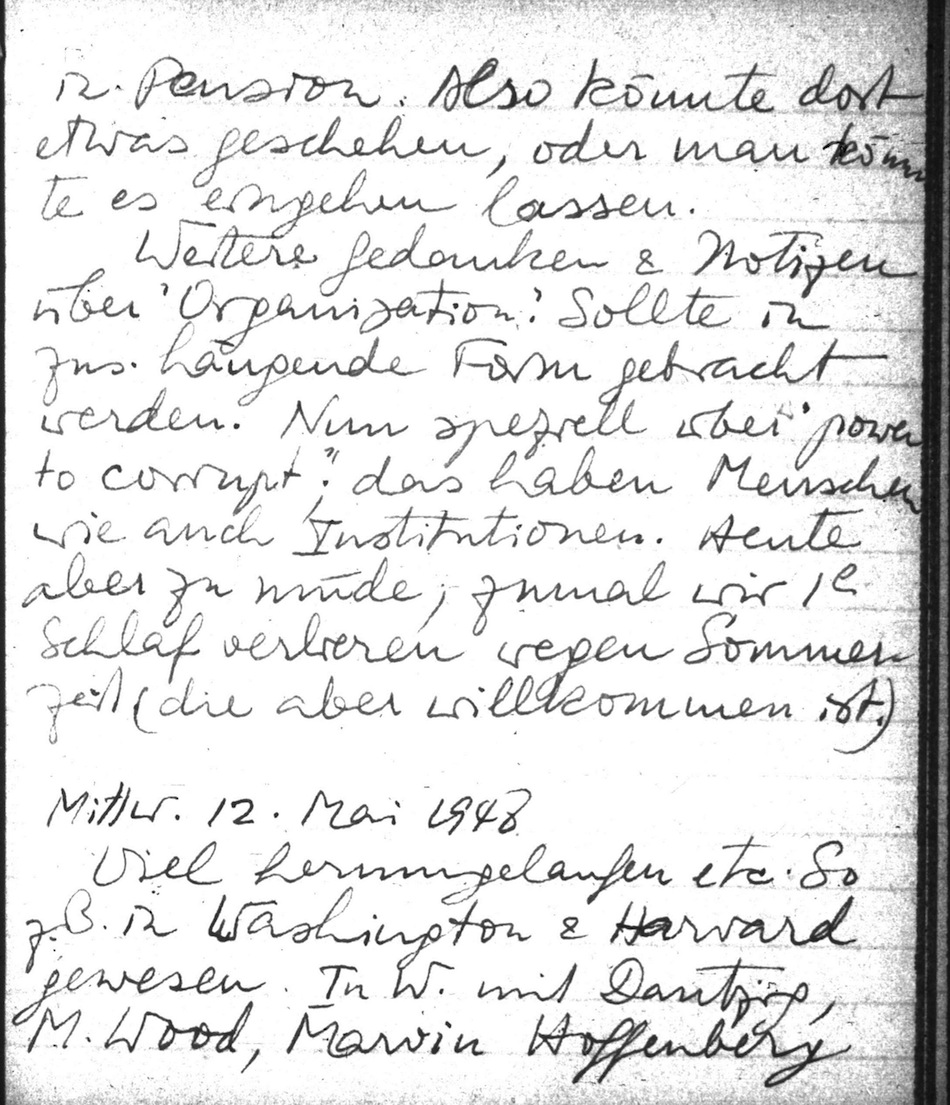 in Pension. Also könnte dort
etwas geschehen, oder man könn
te es eingehen lassen.
Weitere Gedanken & Notizen
über 'Organization'. Sollte in
zus. hängende Form gebracht
werden. Nun speziell über "power
to corrupt"; das haben Menschen
wie auch Institutionen. Heute
aber zu müde; zumal wir 1h
Schlaf verlieren wegen Sommer
zeit (die aber willkommen ist.)
Mittw. 12. Mai 1948
Viel herumgelaufen etc. So
z.B. in Washington & Harvard
gewesen. In W. mit Dantzig,
M. Wood, Marvin Hoffenberg